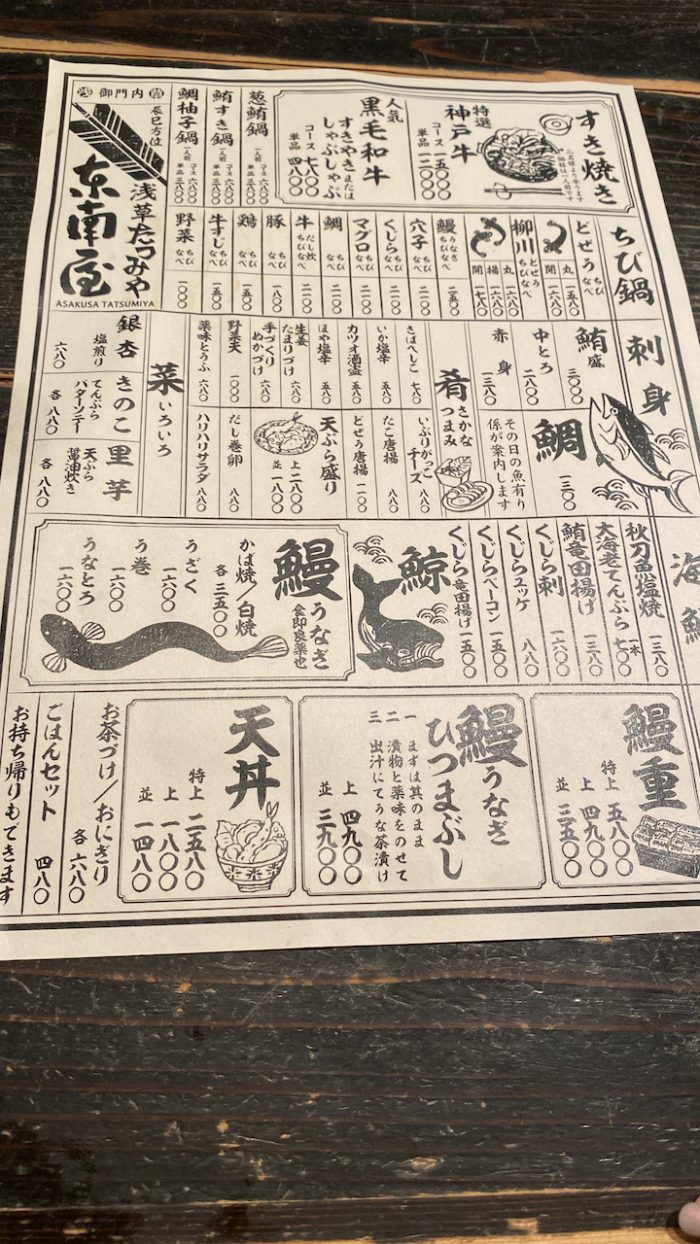 すき焼き
特選
神戸牛
コース 一五〇〇〇
単品 一二〇〇〇
人気
黒毛和牛
すきやきまたは
しゃぶしゃぶ
コース 七八〇〇
単品 四八〇〇
葱鮪鍋 一人前 コース 六八〇〇
鮪すき鍋 一人前 コース 六八〇〇 単品 三八〇〇
鯛柚子鍋 一人前 コース 六八〇〇 単品 三八〇〇
御門内
辰巳方位
浅草たつみや
東南屋
ASAKUSA TATSUMIYA
ちび鍋
どぜう ちびなべ
丸 一五八〇
開 一六八〇
柳川 どぜうちびなべ
丸 一六八〇
揚 一六八〇
開 一七八〇
鰻 うなぎちびなべ 二五〇〇
穴子 ちびなべ 二一〇〇
くじら ちびなべ 二一〇〇
マグロ ちびなべ 二一〇〇
鯛 ちびなべ 二一〇〇
牛 だし炊ちびなべ 二一〇〇
豚 ちびなべ 一八〇〇
鶏 ちびなべ 一五〇〇
牛すじ ちびなべ 一五〇〇
野菜 ちびなべ 一〇〇〇
刺身
鮪盛 三〇〇〇
中とろ 二八〇〇
赤身 一三八〇
鯛 一三〇〇
その日の魚有り
係が案内します
肴 さかなつまみ
さばへしこ 七八〇
いか塩辛 五八〇
カツオ酒盗 五八〇
ほや塩辛 五八〇
生姜たまりづけ 六八〇
手づくりぬかづけ 六八〇
野菜天 一〇〇〇
薬味とうふ 六八〇
いぶりがっこチーズ 八八〇
たこ唐揚 八八〇
どぜう唐揚 一二〇〇
天ぷら盛り
上 二八〇〇
並 一八八〇
だし巻卵 八八〇
ハリハリサラダ 八八〇
菜 いろいろ
銀杏 塩煎り 六八〇
きのこ
てんぷら
バターソテー
各 八八〇
里芋
天ぷら
醤油炊き
各 八八〇
海鮮
秋刀魚塩焼 一三八〇
大海老てんぷら 一本 七〇〇
鮪竜田揚げ 一三八〇
くじら刺 一六八〇
くじらユッケ 八八〇
くじらベーコン 一五〇〇
くじら竜田揚げ 一五〇〇
鯨
鰻 うなぎ
食即良薬也
かば焼/白焼 各 三五〇〇
うざく 一六〇〇
う巻 一六〇〇
うなとろ 一六〇〇
鰻重
特上 五八〇〇
上 四九〇〇
並 三五〇〇
鰻 うなぎ
ひつまぶし
一 まずは其のまま
二 漬物と薬味をのせて
三 出汁にてうな茶漬け
上 四九〇〇
並 三九〇〇
天丼
特上 二五八〇
上 一八〇〇
並 一四八〇
お茶づけ/おにぎり 各 六八〇
ごはんセット 四八〇
お持ち帰りもできます